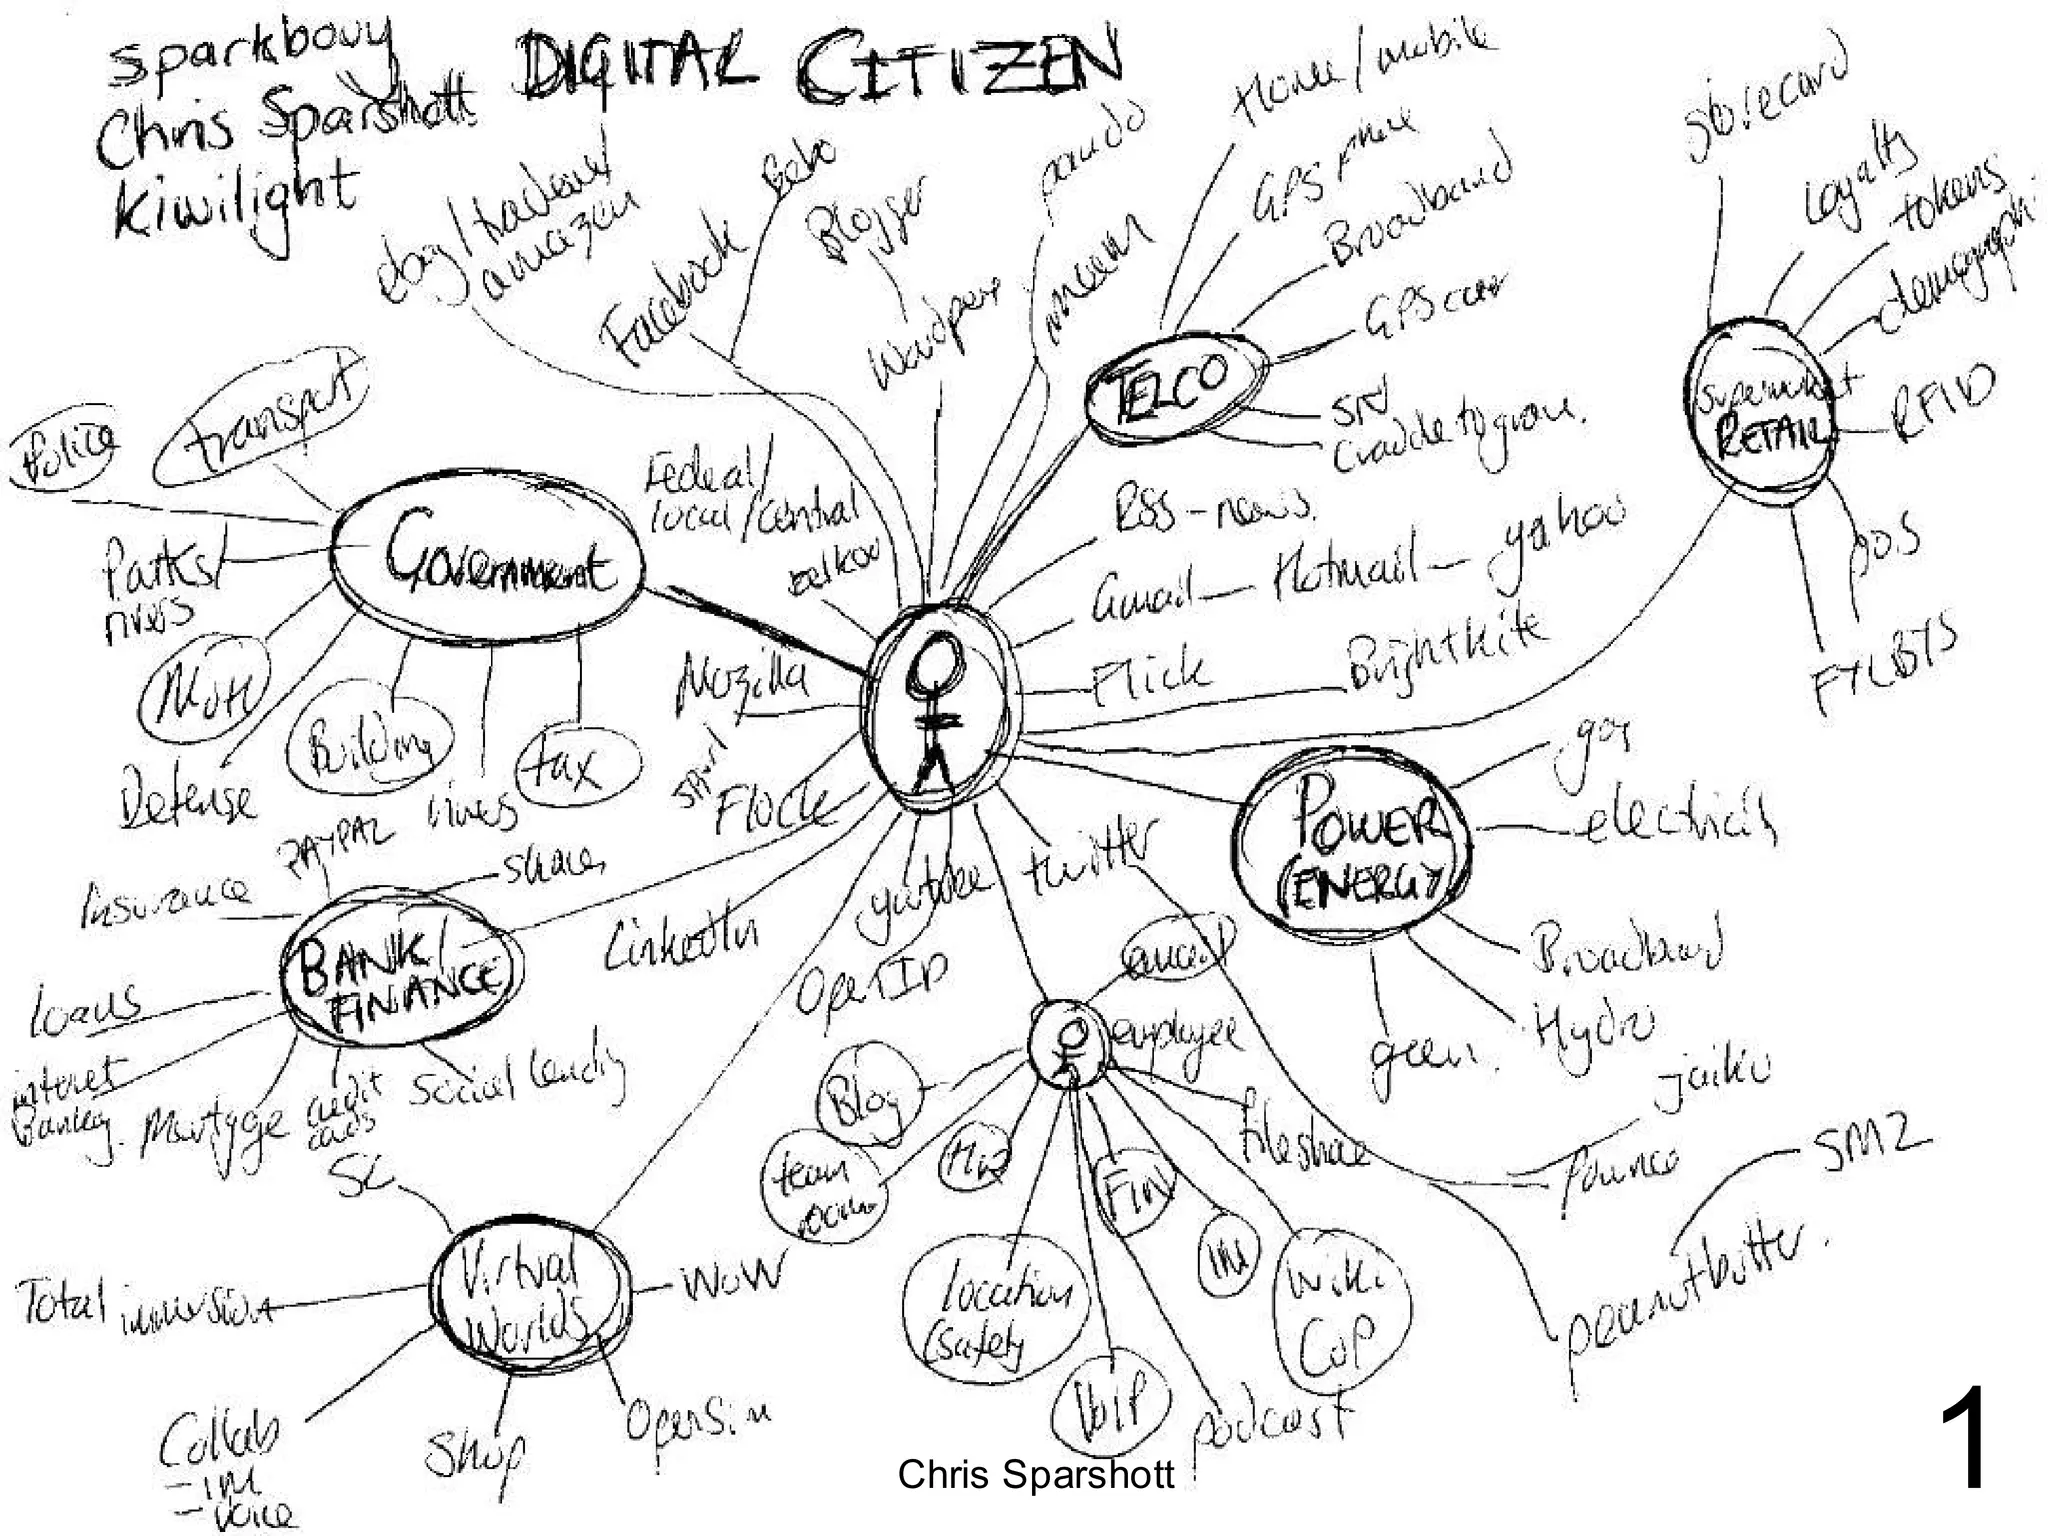 sparkbouy
Chris Sparshott
Kiwilight
DIGITAL CITIZEN
ebay/trademe/
amazon
Facebook
Bebo
Blogger
Home/mobile
GPS phone
Broadband
TELCO
storecard
Loyalty
tokens
RFID
Supermarket
RETAIL
POS
FYLBYS
Police
transport
Government
Federal/
local/central
Parks/
rivers
Building
tax
Defense
RSS-news.
Gmail - Hotmail - yahoo
Flick
Brightkite
Mozilla
Flock
LinkedIn
youtube
twitter
OpenID
POWER
(ENERGY)
gas
electricity
Broadband
Hydro
green.
PAYPAL
shares
Insurance
BANK/
FINANCE
loans
internet
Banking.
Mortgage
credit
cards
Social Lending
employee
email
Blog
team
rooms
FIN
IM
fileshare
location
(safety
VOIP
podcast
Wiki
CoP
jaiku
Pownce
peanutbutter.
SMZ
SL
Virtual
Worlds
WoW
Total immersion
Collab
- IM
- voice
Shop
OpenSim
Chris Sparshott
1